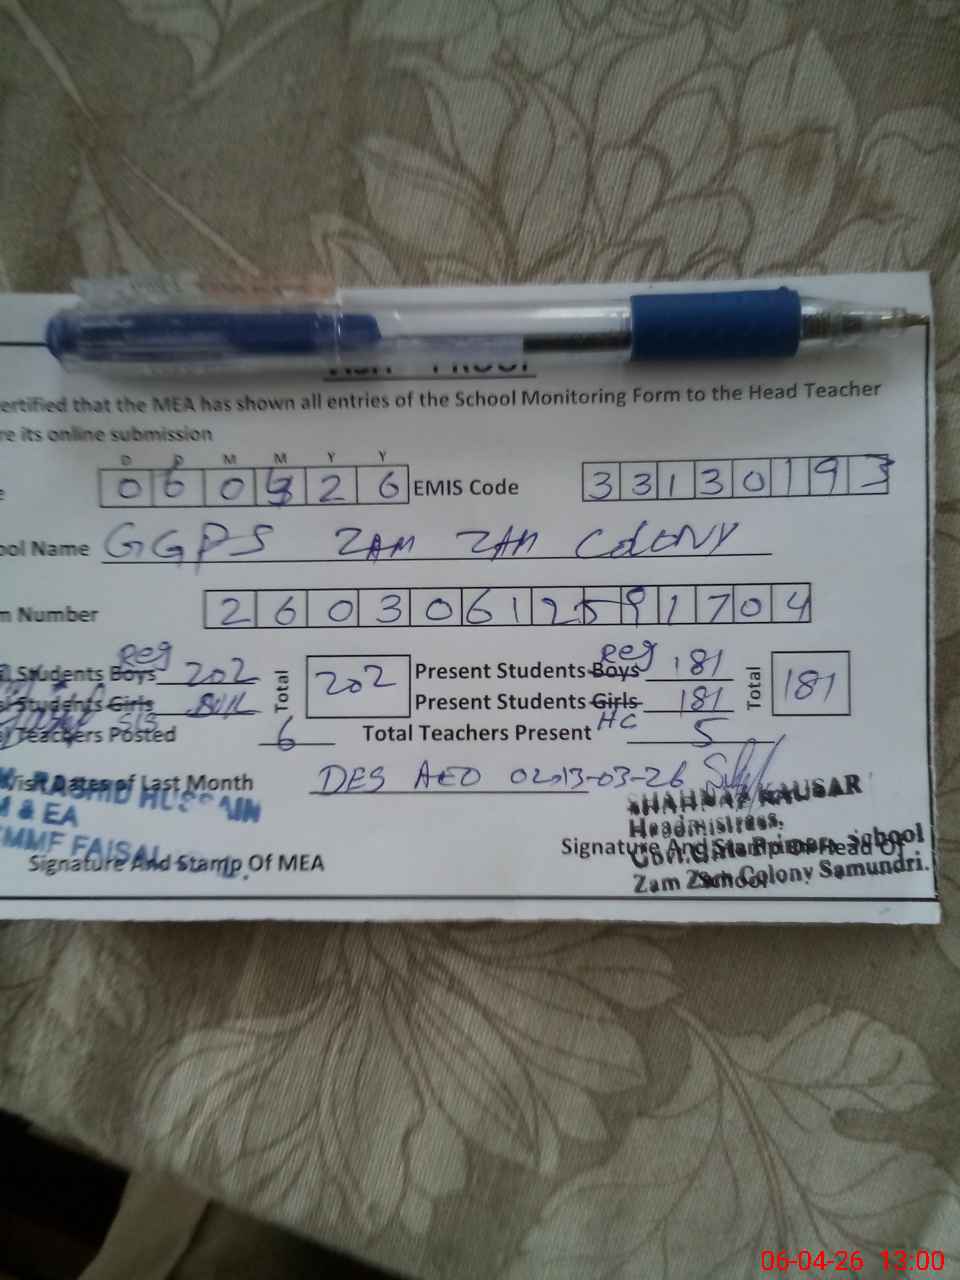 ertified that the MEA has shown all entries of the School Monitoring Form to the Head Teacher
re its online submission
D D M M Y Y
0 6 0 4 2 6 EMIS Code 3 3 1 3 0 1 9 3
ool Name GGPS ZAM ZAM COLONY
m Number 2 6 0 3 0 6 1 2 5 9 1 7 0 4
Students Boys Reg 202 Total 202 Present Students Boys Reg 181 Total 181
Students Girls Present Students Girls 181
Teachers Posted 6 Total Teachers Present HC 5
Visit Dates of Last Month DES AEO 02, 13-03-26
RASHID HUSSAIN
M & EA
CMMF FAISAL
Signature And Stamp Of MEA
SHAHNAZ KAUSAR
Headmistress.
Signature And Stamp Of Head Of School
Govt. Girls Primary School
Zam Zam Colony Samundri.
06-04-26 13:00